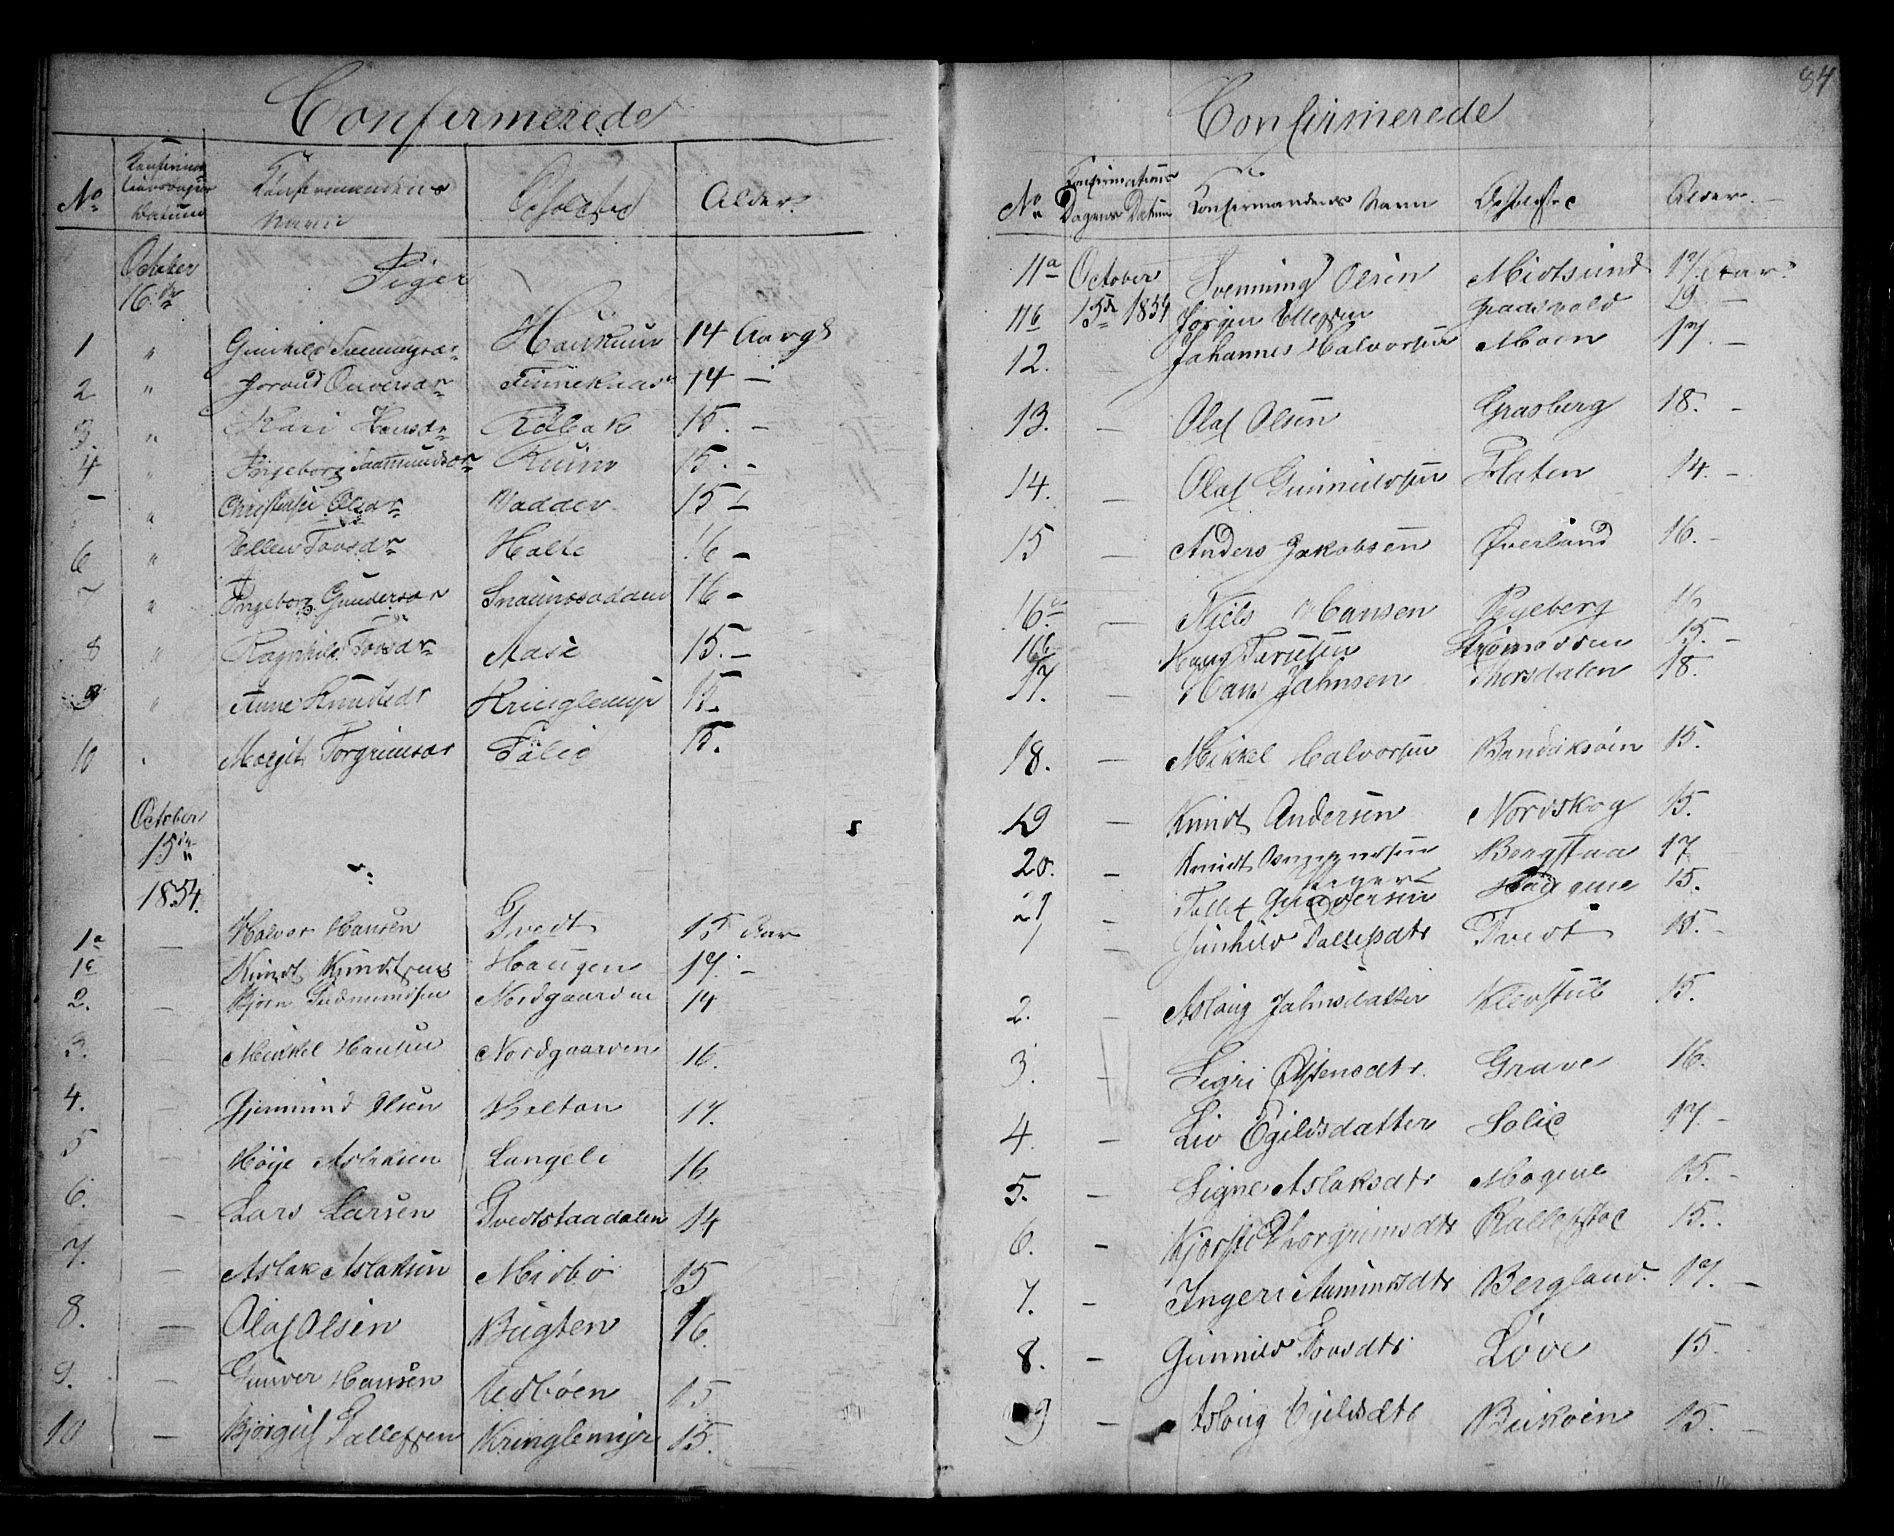 Confirmerede
No Confirmationsdagens Datum Konfirmandens Navn Opholdssted Alder.
October 16de Piger
1 " Gunhild Svenningsdr Haukuun 14 Aargl
2 " Joraud Oliversdr Tinneknas 14 –
3. " Kari Hansdr Rølak 15. –
4 " Ingeborg Saamundsdr Ruine 15. –
– " Christense Olsdr Vadder 15 –
6 " Ellen Tovsdr Holte 16 –
" Ingeborg Gundersdr 16 –
8 " Ragnhild Tovsdr Aase 15. –
9 " Anne Knudsdr Kringlemyr 15 –
10 " Margit Torgrimsdr Folie 15.
October
15de
1854.
1a – Halvor Hansen Tvedt 15 Aar
1b Knudt Knudtsen Haugen 17. –
2. – Bjørn Gudmundsen Nordgaarden 14
3. – Mikkel Hansen Nordgaarden 16.
4. – Gjermund Olsen Bolton 17.
5 Høije Aslaksen Langeli 16
6. – Lars Larsen Tvedtstaadalen 14
7. – Aslak Aslaksen Midbø 15
8. – Olaf Olsen Bugten 16.
9. – Gunder Hansen Uedbøen 15
10 – Bjørgulf Tallefsen Kringlemyr 15.
84
Confirmerede
No Konfirmations Dagens Datum Konfirmandens Navn Opholdsted Alder. –
11a October Svenning Olsen Miotsund 17. Aar.
11b 15de 1854 Jørgen Ellefsen Graasvold 19. –
12. Johannes Halvorsen Moen 17. –
13. – Olaf Olsen Grasberg 18. –
14. – Olaf Gunnulvsen Flaten 14. –
15 – Anders Jakobsen Øverland 16. –
16a – Niels Hansen Rygeberg 16
16b Hans 15. –
17. – Hans Jahnsen Thorsdalen 18.
18. – Mikkel Halvorsen Bendiksøin 15.
19 – Knudt Andersen Nordskog 15.
20. – Knudt Bergstaa 17
21 – Tallef Gundersen Haugene 15.
Piger
1 – Gunhild Tallefsdtr Tvedt 15. –
2. – Aslaug Jahnsdatter Klevstul 15.
3. – Sigri Østensdtr Grave 16.
4. – Liv Egildsdatter Solie 17. –
5. – Signe Aslaksdtr Mogene 15. –
6. – Kjersti Thorgrimsdtr Kallefstoe 15.
7. – Ingeri Aamundsdtr Bergland 17. –
8. – Gunnild Tovsdtr Løve 15.
9 – Aslaug Egildsdtr Buikøen 15. –